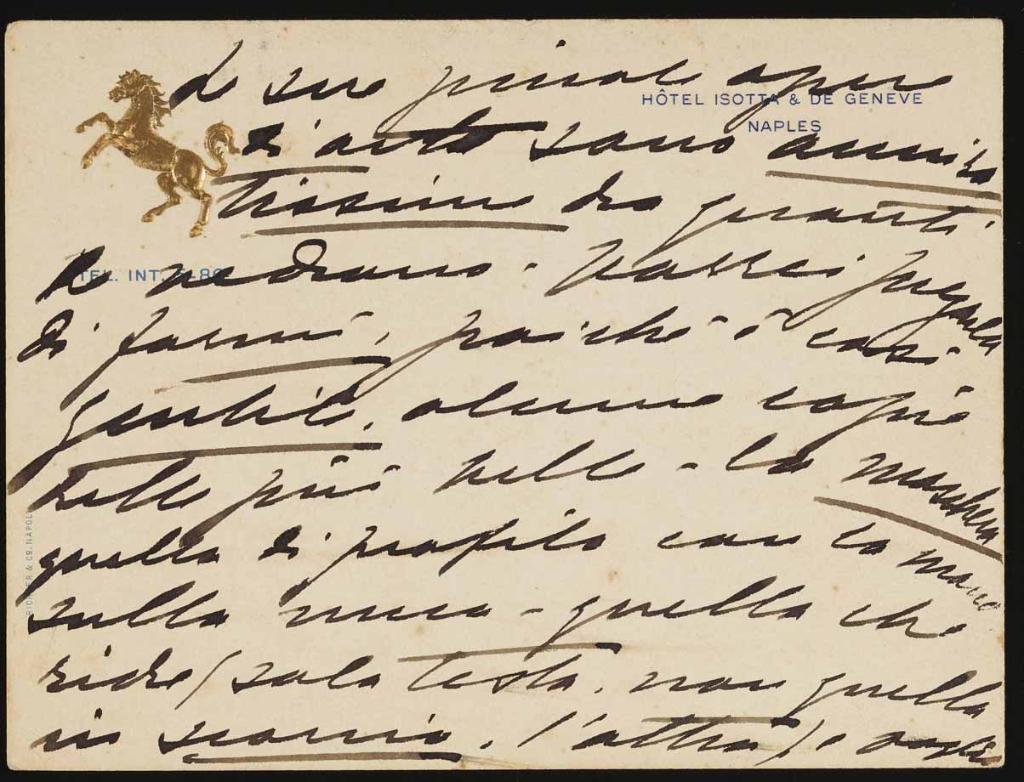 HÔTEL ISOTTA & DE GENEVE
NAPLES
Le sue piccole opere
di arte sono ammira
tissime da quanti
le vedranno. Vorrei pregarla
di farmi, poichè è così
gentile, alcune copie
delle più belle - la maschera
quella di profilo con la mano
sulla nuca - quella che
ride (sola testa, non quella
in scorcio, l'altra) e
TEL. INT.
RICHTER & Co. NAPOLI